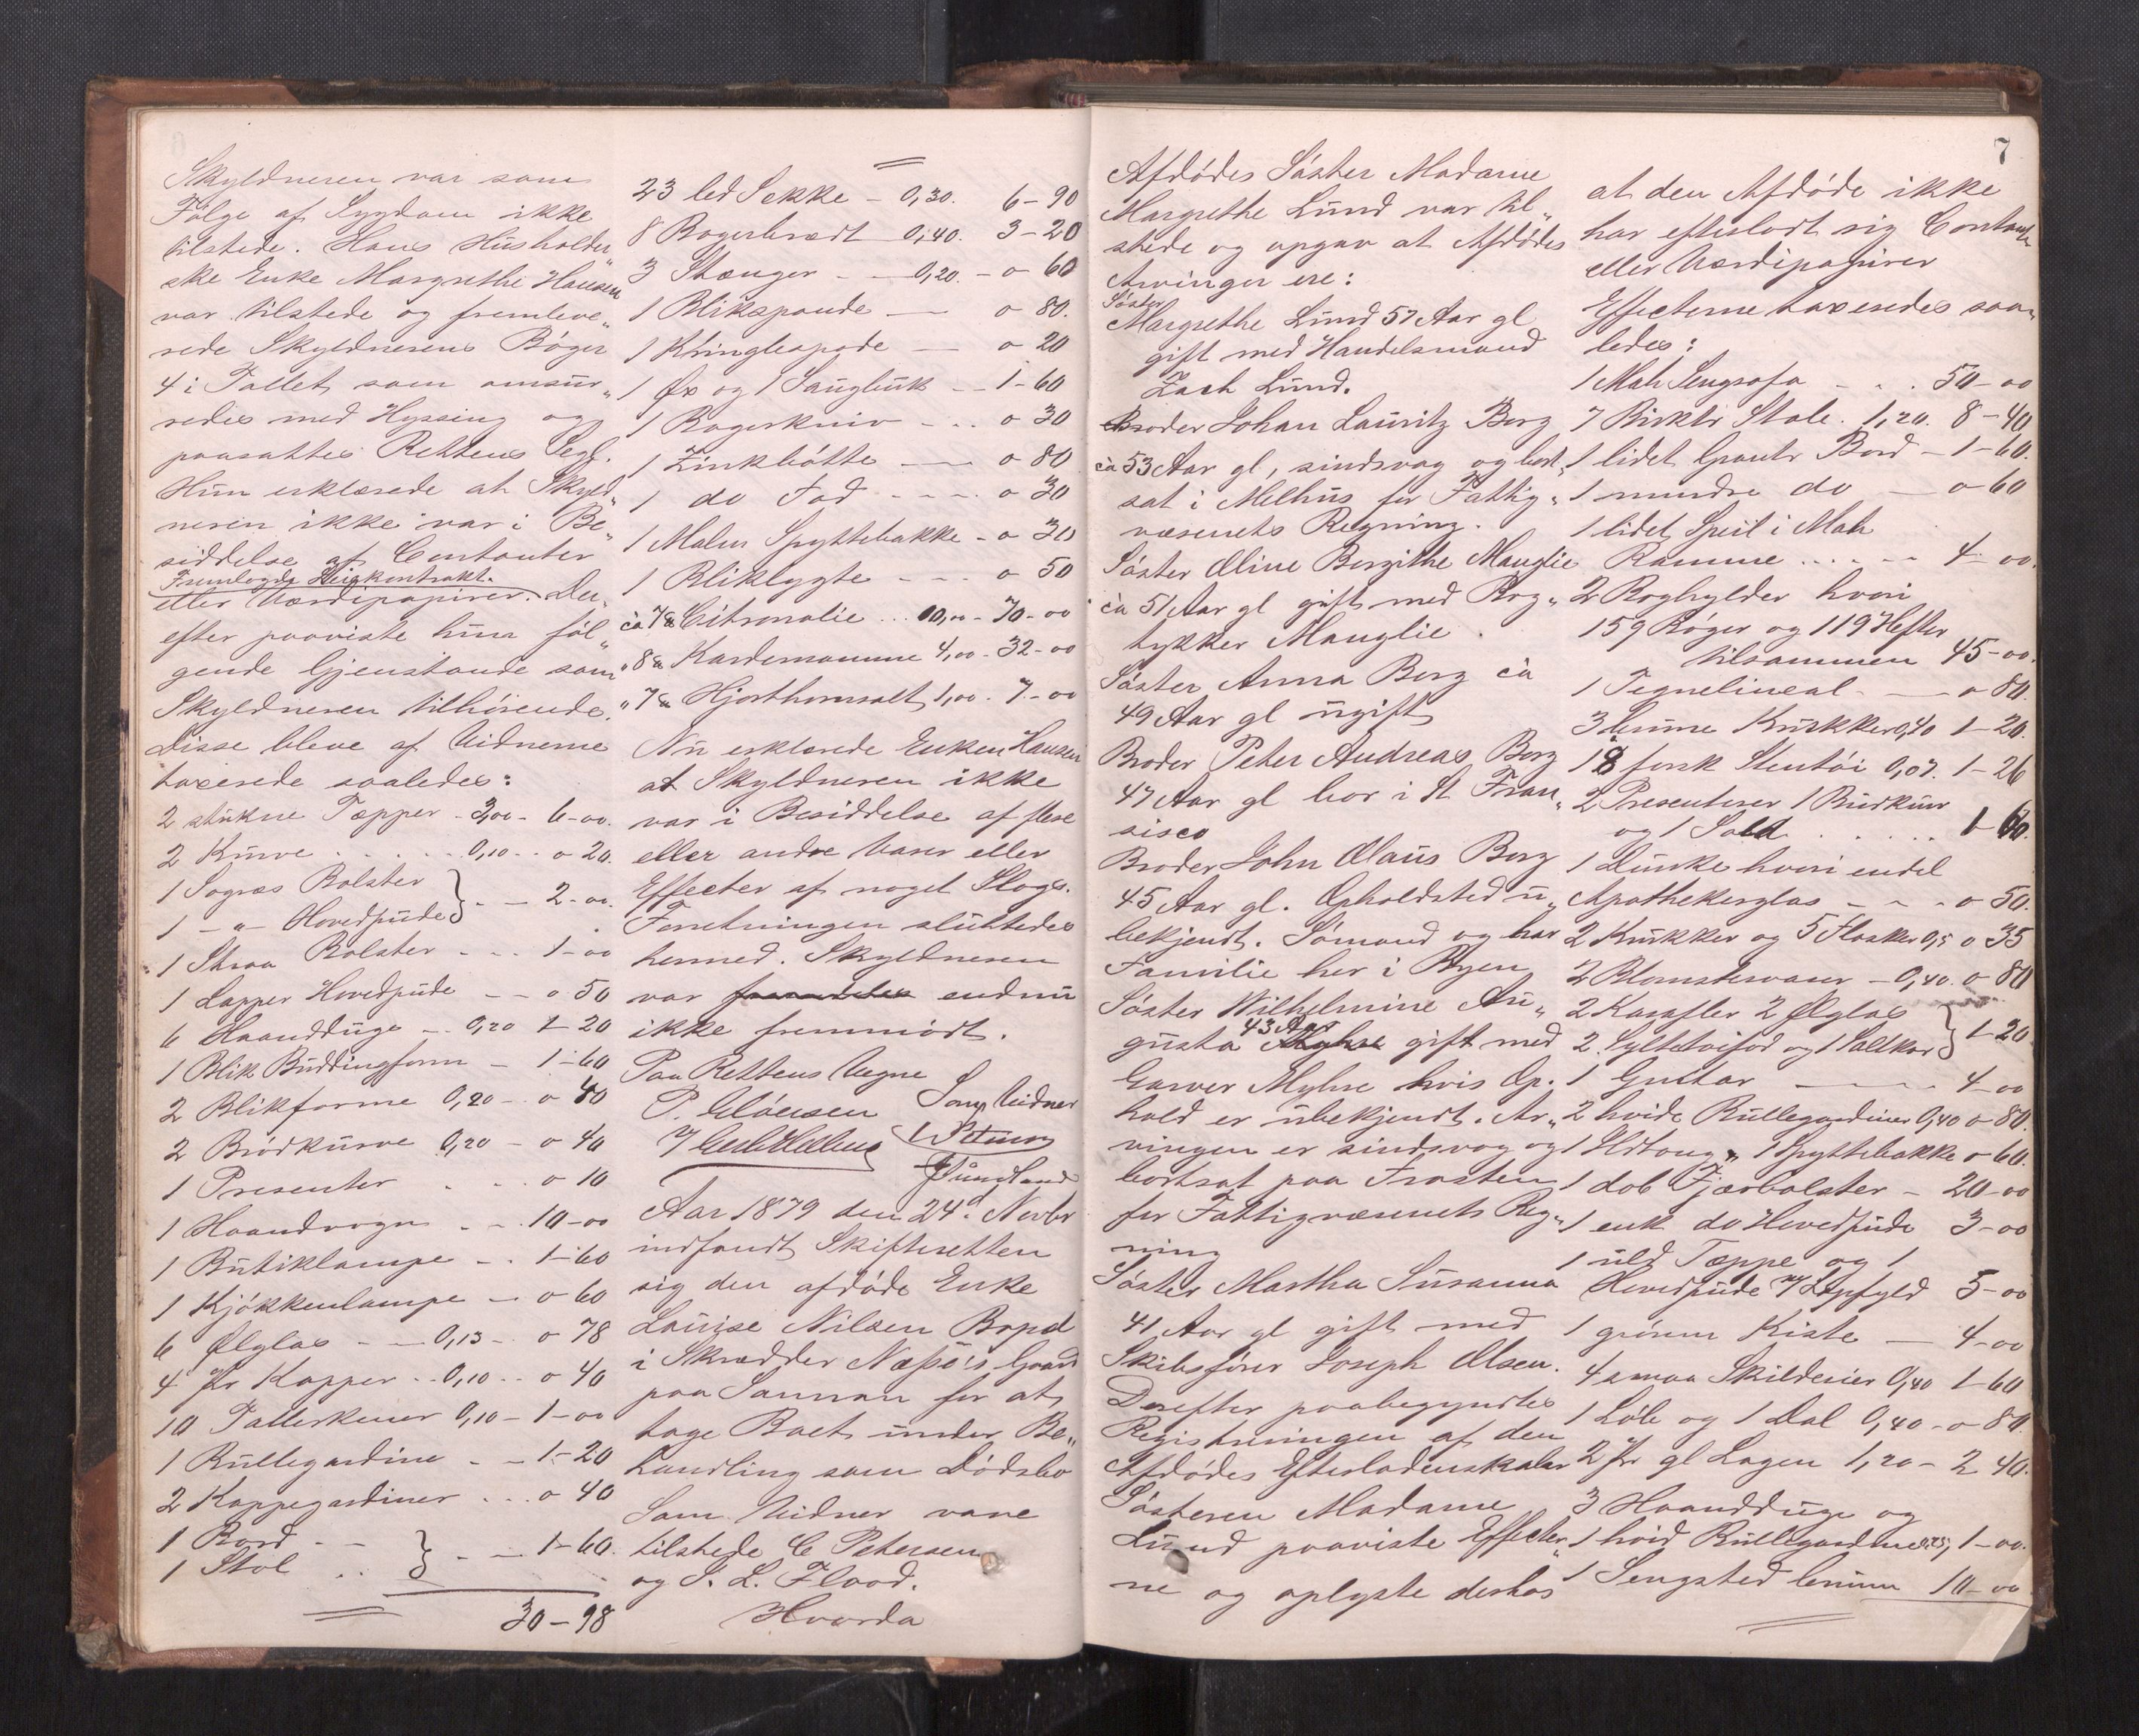 Skyldneren var som
Følge af Sygdom ikke
tilstede. Hans Husholder„
ske Enke Margrethe Hansen
var tilstede og fremleve„
rede Skyldnerens Bøger
4 i Tallet som omsnør„
redes med Hyssing og
paasattes Rettens Segl.
Hun erklærede at Skyld„
neren ikke var i Be„
siddelse af Contanter
Fremlagde Leiekontrakt.
eller Værdipapirer. Der„
efter paaviste hun føl„
gende Gjenstande som
Skyldneren tilhørende.
Disse bleve af Vidnerne
taxerede saaledes:
2 stukne Tæpper - 3,00 - 6-00.
2 Kurve . . . . 0,10 . . 0 20.
1 Søgræs Bolster
1 -"- Hovedpude } - - 2-00.
1 Straa Bolster - - - 1-00
1 Lapper Hovedpude - - 0 50
6 Haandduge - 0,20 1-20
1 Blik Buddingform - 1-60
2 Blikforme 0,20 - 0 40
2 Brødkurve 0,20 - 0 40
1 Presenter . . . 0 10
1 Haandvogn - - 10-00
1 Butiklampe - . 1-60
1 Kjøkkenlampe - 0 60
6 Ølglas - - 0,13 - 0 78
4 Pr Kopper . . 0,10 . . 0 40
10 Tallerkener 0,10 - 1-00
1 Rullegardine - - 1-20
2 Kappegardiner . . . 0 40
1 Bord - -
1 Stol . . } - - 1-60.
30-98
23 led Sekke - 0,30. 6-90
8 Bagerbrædt 0,40. 3-20
3 Stænger - - 0,20. - 0 60
1 Blikspande - 0 80.
1 Kringlespade - 0 20
1 Øx og 1 Saugbuk - - 1-60
1 Bagerkniv - . . 0 30
1 Zinkbøtte - 0 80
1 do Fad - - - . 0 30
1 Malm Spyttebakke - 0 30
1 Bliklygte - - - 0 50
ca 7 ℔ Citronolie . . . 10,00 - 70-00
" 8 ℔ Kardemomme 4,00 - 32-00
" 7 ℔ Hjorthornsalt 1,00 - 7-00
Nu erklærede Enken Hansen
at Skyldneren ikke
var i Besiddelse af flere
eller andre Varer eller
Effecter af noget Slags.
Forretningen sluttedes
hermed. Skyldneren
var endnu
ikke fremmødt.
Paa Rettens Vegne
Som Vidner
Aar 1879 den 24d. Novbr
indfandt Skifteretten
sig den afdøde Enke
Louise Nilsen Bopel
i Skrædder Næssø's Gaard
paa Sannan for at
tage Boet under Be„
handling som Dødsbo
Som Vidner vare
tilstede C Petersen
og S. L. Flood.
Hvorda
7
Afdødes Søster Madame
Margrethe Lund var til„
stede og opgav at Afdødes
Arvinger ere:
Søster
Margrethe Lund 57 Aar gl
gift med Handelsmand
Zach Lund.
Broder Johan Lauritz Borg
ca 53 Aar gl, sindsvag og bort„
sat i Melhus for Fattig„
væsenets Regning.
Søster Oline Bergithe Manglie
ca 51 Aar gl gift med Bog„
trykker Manglie.
Søster Anna Borg ca
49 Aar gl ugift
Broder Peter Andreas Borg
47 Aar gl bor i St Fran„
sisco
Broder John Olaus Borg
45 Aar gl. Opholdsted u„
bekjendt. Sømand og har
Familie her i Byen
Søster Wilhelmine Au„
43 Aar
gusta Myhre gift med
Garver Myhre hvis Op.
hold er ubekjendt. Ar„
vingen er sindsvag og
bortsat paa Frosten
for Fattigvæsenets Reg„
ning
Søster Martha Susanna
41 Aar gl gift med
Skibsfører Joseph Olsen.
Derefter paabegyndtes
Registreringen af den
Afdødes Efterladenskaber
Søsteren Madame
Lund paaviste Effecter„
ne og oplyste derhos
at den Afdøde ikke
har efterladt sig Contanter
eller Værdipapirer
Effecterne taxeredes saa„
ledes:
1 Mah Sengsofa - . . 50-00
7 Birktr Stole . 1,20. 8-40
1 lidet Grantr Bord - 1-60.
1 mindre do - 0-60
1 lidet Speil i Mah
Ramme . . . . - - 4-00.
2 Boghylder hvori
159 Bøger og 119 Hefter
tilsammen 45-00.
1 Tegnelineal - - 0-80.
3 Krukker 0,40 1-20.
18 forsk Stentøi 0,07. 1-26
2 Presenterer 1 Brødkurv
og 1 Sold . . . . . 1-60.
1 Dunke hvori endel
Apothekerglas - - - 0-50.
2 Krukker og 5 Flasker 0,5 0 35
2 Blomstervaser - 0,40. 0-80
2 Karafler 2 Ølglas
2 Syltetøifod og 1 Saltkar } 1-20
1 Guitar - - - - 4-00
2 hvide Rullegardiner 0,40 0-80.
1 Ildtang, 1 Spyttebakke 0-60.
1 dob Fjærbolster - 20-00
1 enk do Hovedpude 3-00
1 uld Tæppe og 1
Hovedpude 5-00
1 grønm Kiste - 4-00
4 smaa Skilderier 0,40 1-60
1 Løb og 1 Dal 0,40 - 0-80.
2 Pr gl Lagen 1,20 - 2 40.
3 Haandduge og
1 hvid Rullegardine 0,25, 1-00.
1 Sengsted brunm 10-00